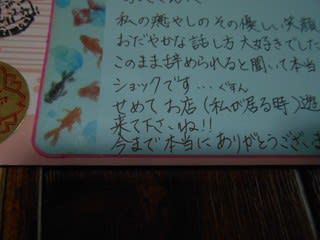 私の癒やしのその優しい笑顔
おだやかな話し方大好きでした
このまま辞められると聞いて本当
ショックです… ぐすん
せめてお店(私が居る時)遊
来て下さいね!!
今まで本当にありがとうございま